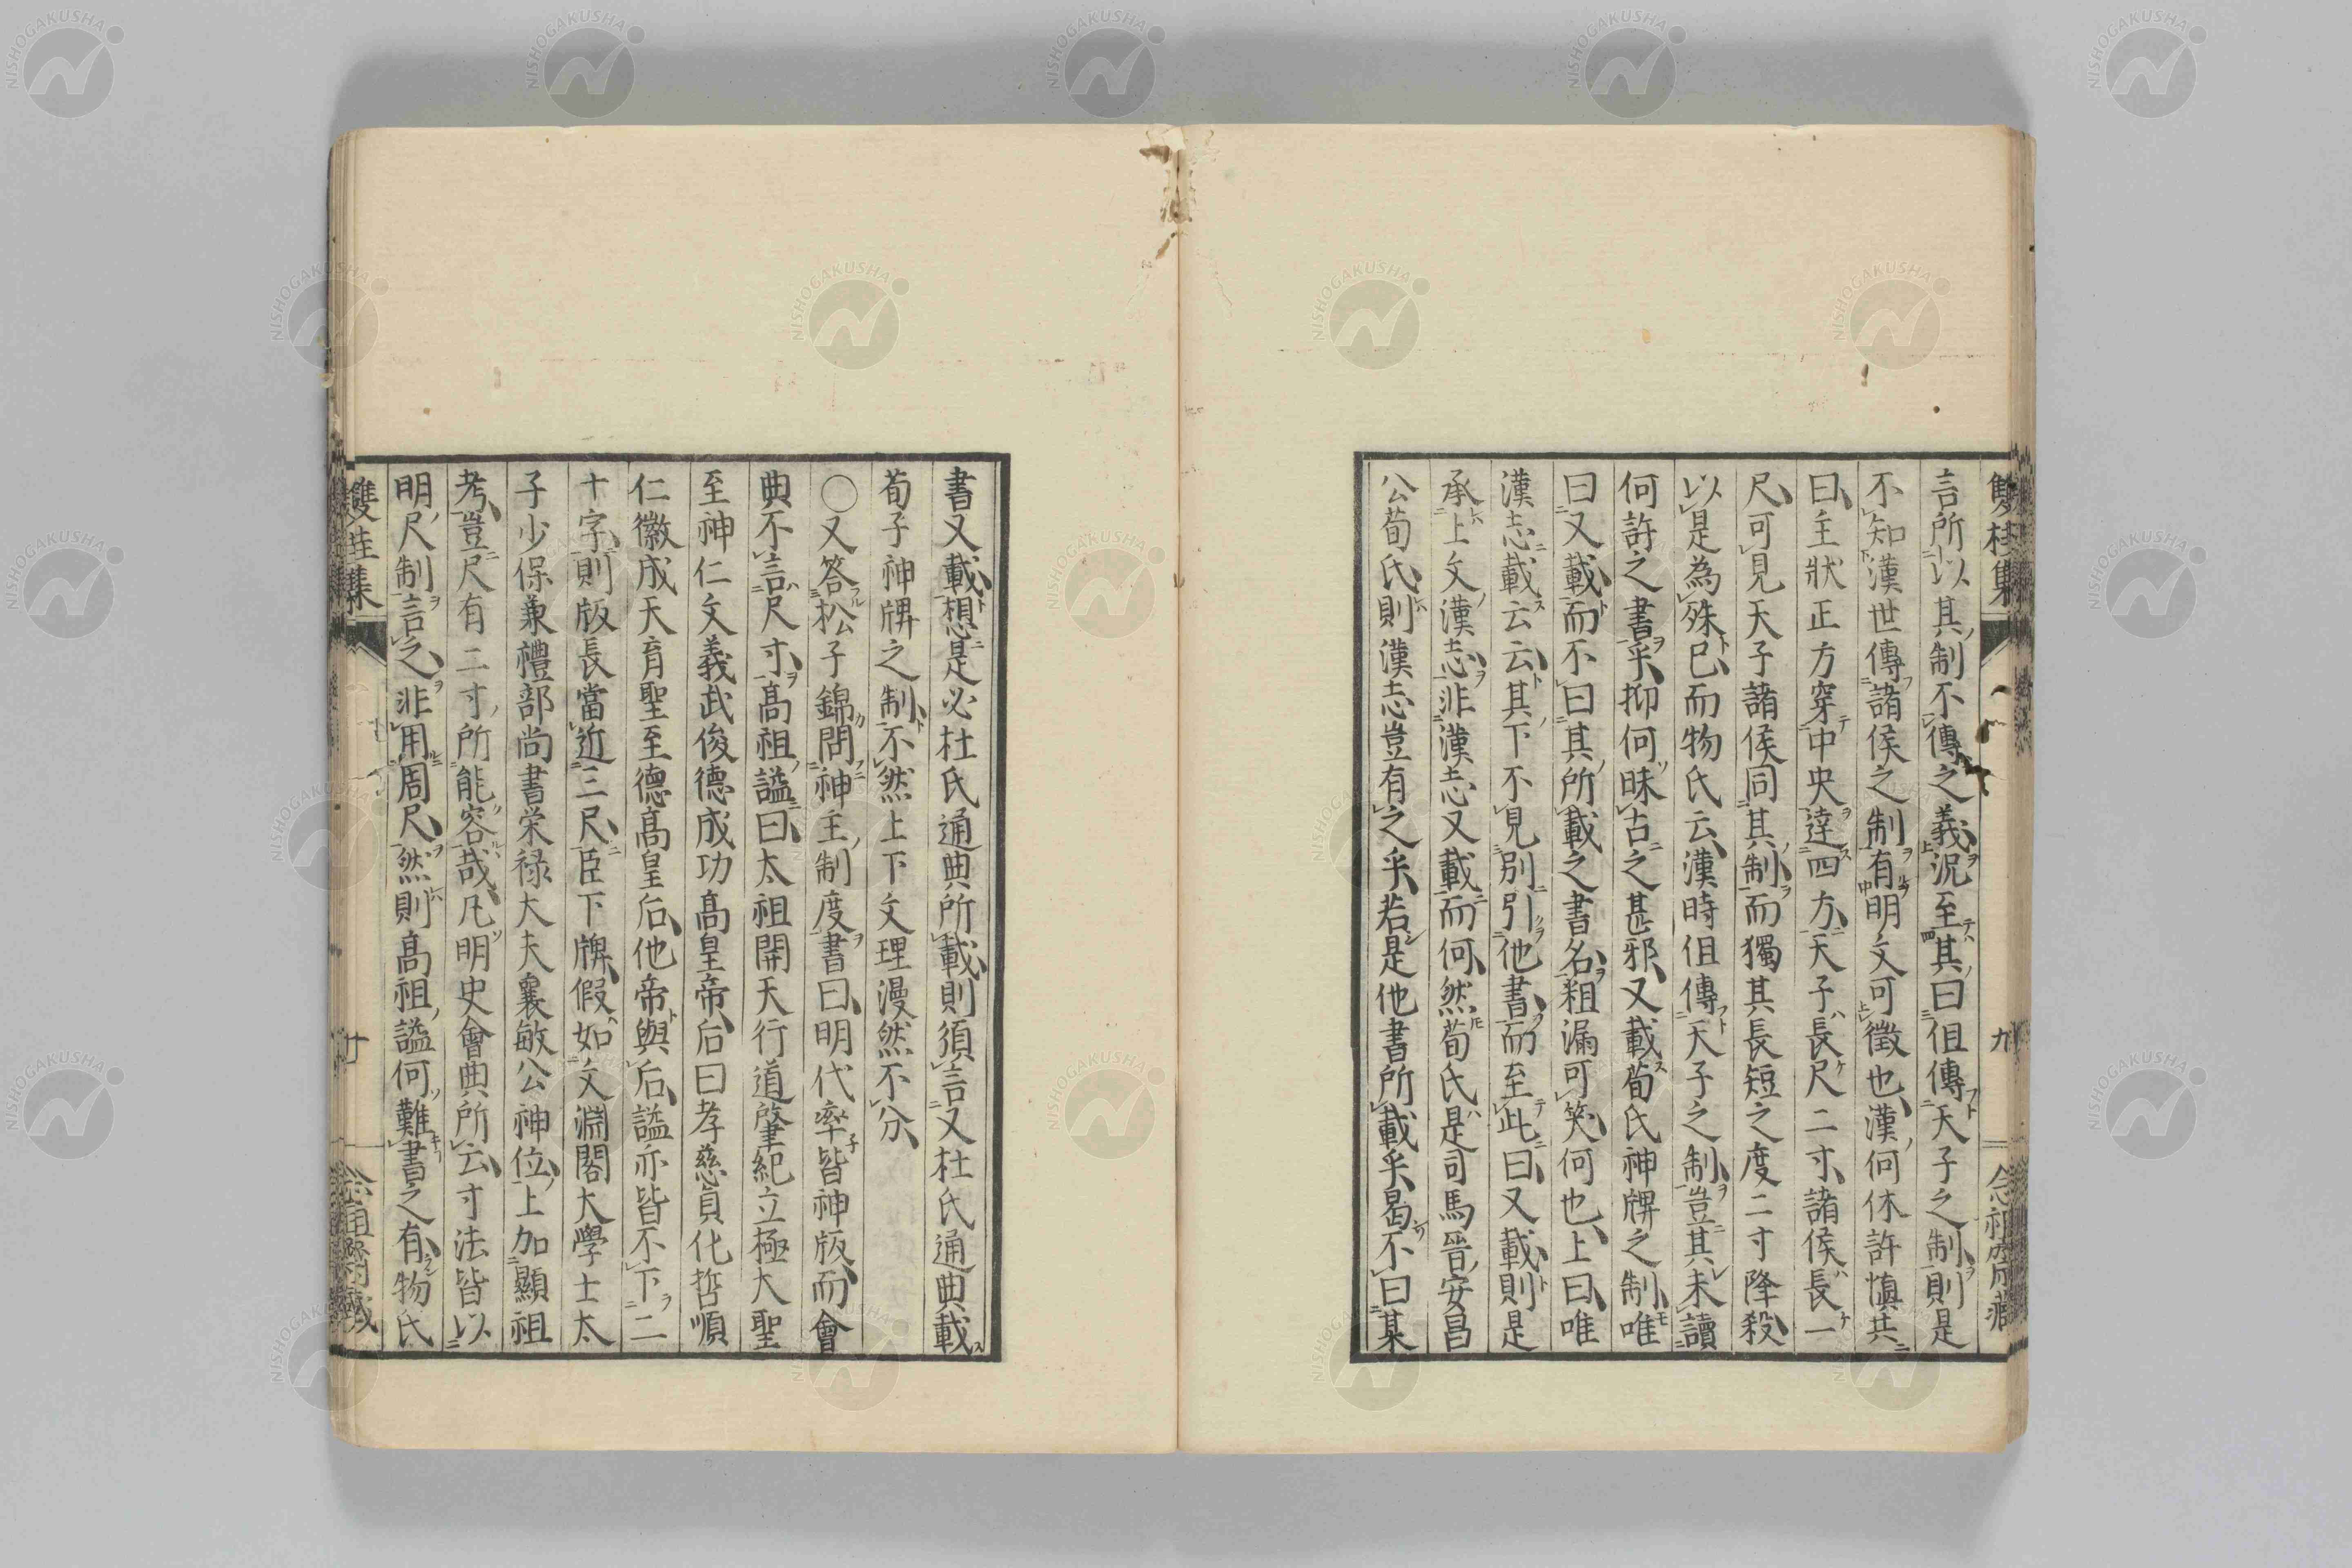 雙桂集
九
言所以其制不傳之義況至其曰但傳天子之制則是
不知漢世傳諸侯之制有明文可徵也漢何休許愼其
曰主狀正方穿中央達四方天子長尺二寸諸侯長一
尺可見天子諸侯同其制而獨其長短之度二寸降殺
以是為殊已而物氏云漢時但傳天子之制豈其未讀
何許之書乎抑何昧古之甚邪又載荀氏神牌之制唯
曰又載而不曰其所載之書名粗漏可笑何也上曰唯
漢志載云云其下不見別引他書而至此曰又載則是
承上文漢志非漢志又載而何然荀氏是司馬晉安昌
公荀氏則漢志豈有之乎若是他書所載乎曷不曰某
書又載想是必杜氏通典所載則須言又杜氏通典載
荀子神牌之制不然上下文理漫然不分
○又答松子錦問神主制度書曰明代率皆神版而會
典不言尺寸高祖謚曰太祖開天行道肇紀立極大聖
至神仁文義武俊德成功高皇帝后曰孝慈貞化哲順
仁徽成天育聖至德高皇后他帝與后謚亦皆不下二
十字則版長當近三尺臣下牌假如文淵閣大學士太
子少保兼禮部尚書栄祿大夫襄敏公神位上加顯祖
考豈尺有二寸所能容哉凡明史會典所云寸法皆以
明尺制言之非用周尺然則高祖謚何難書之有物氏
雙桂集
廿